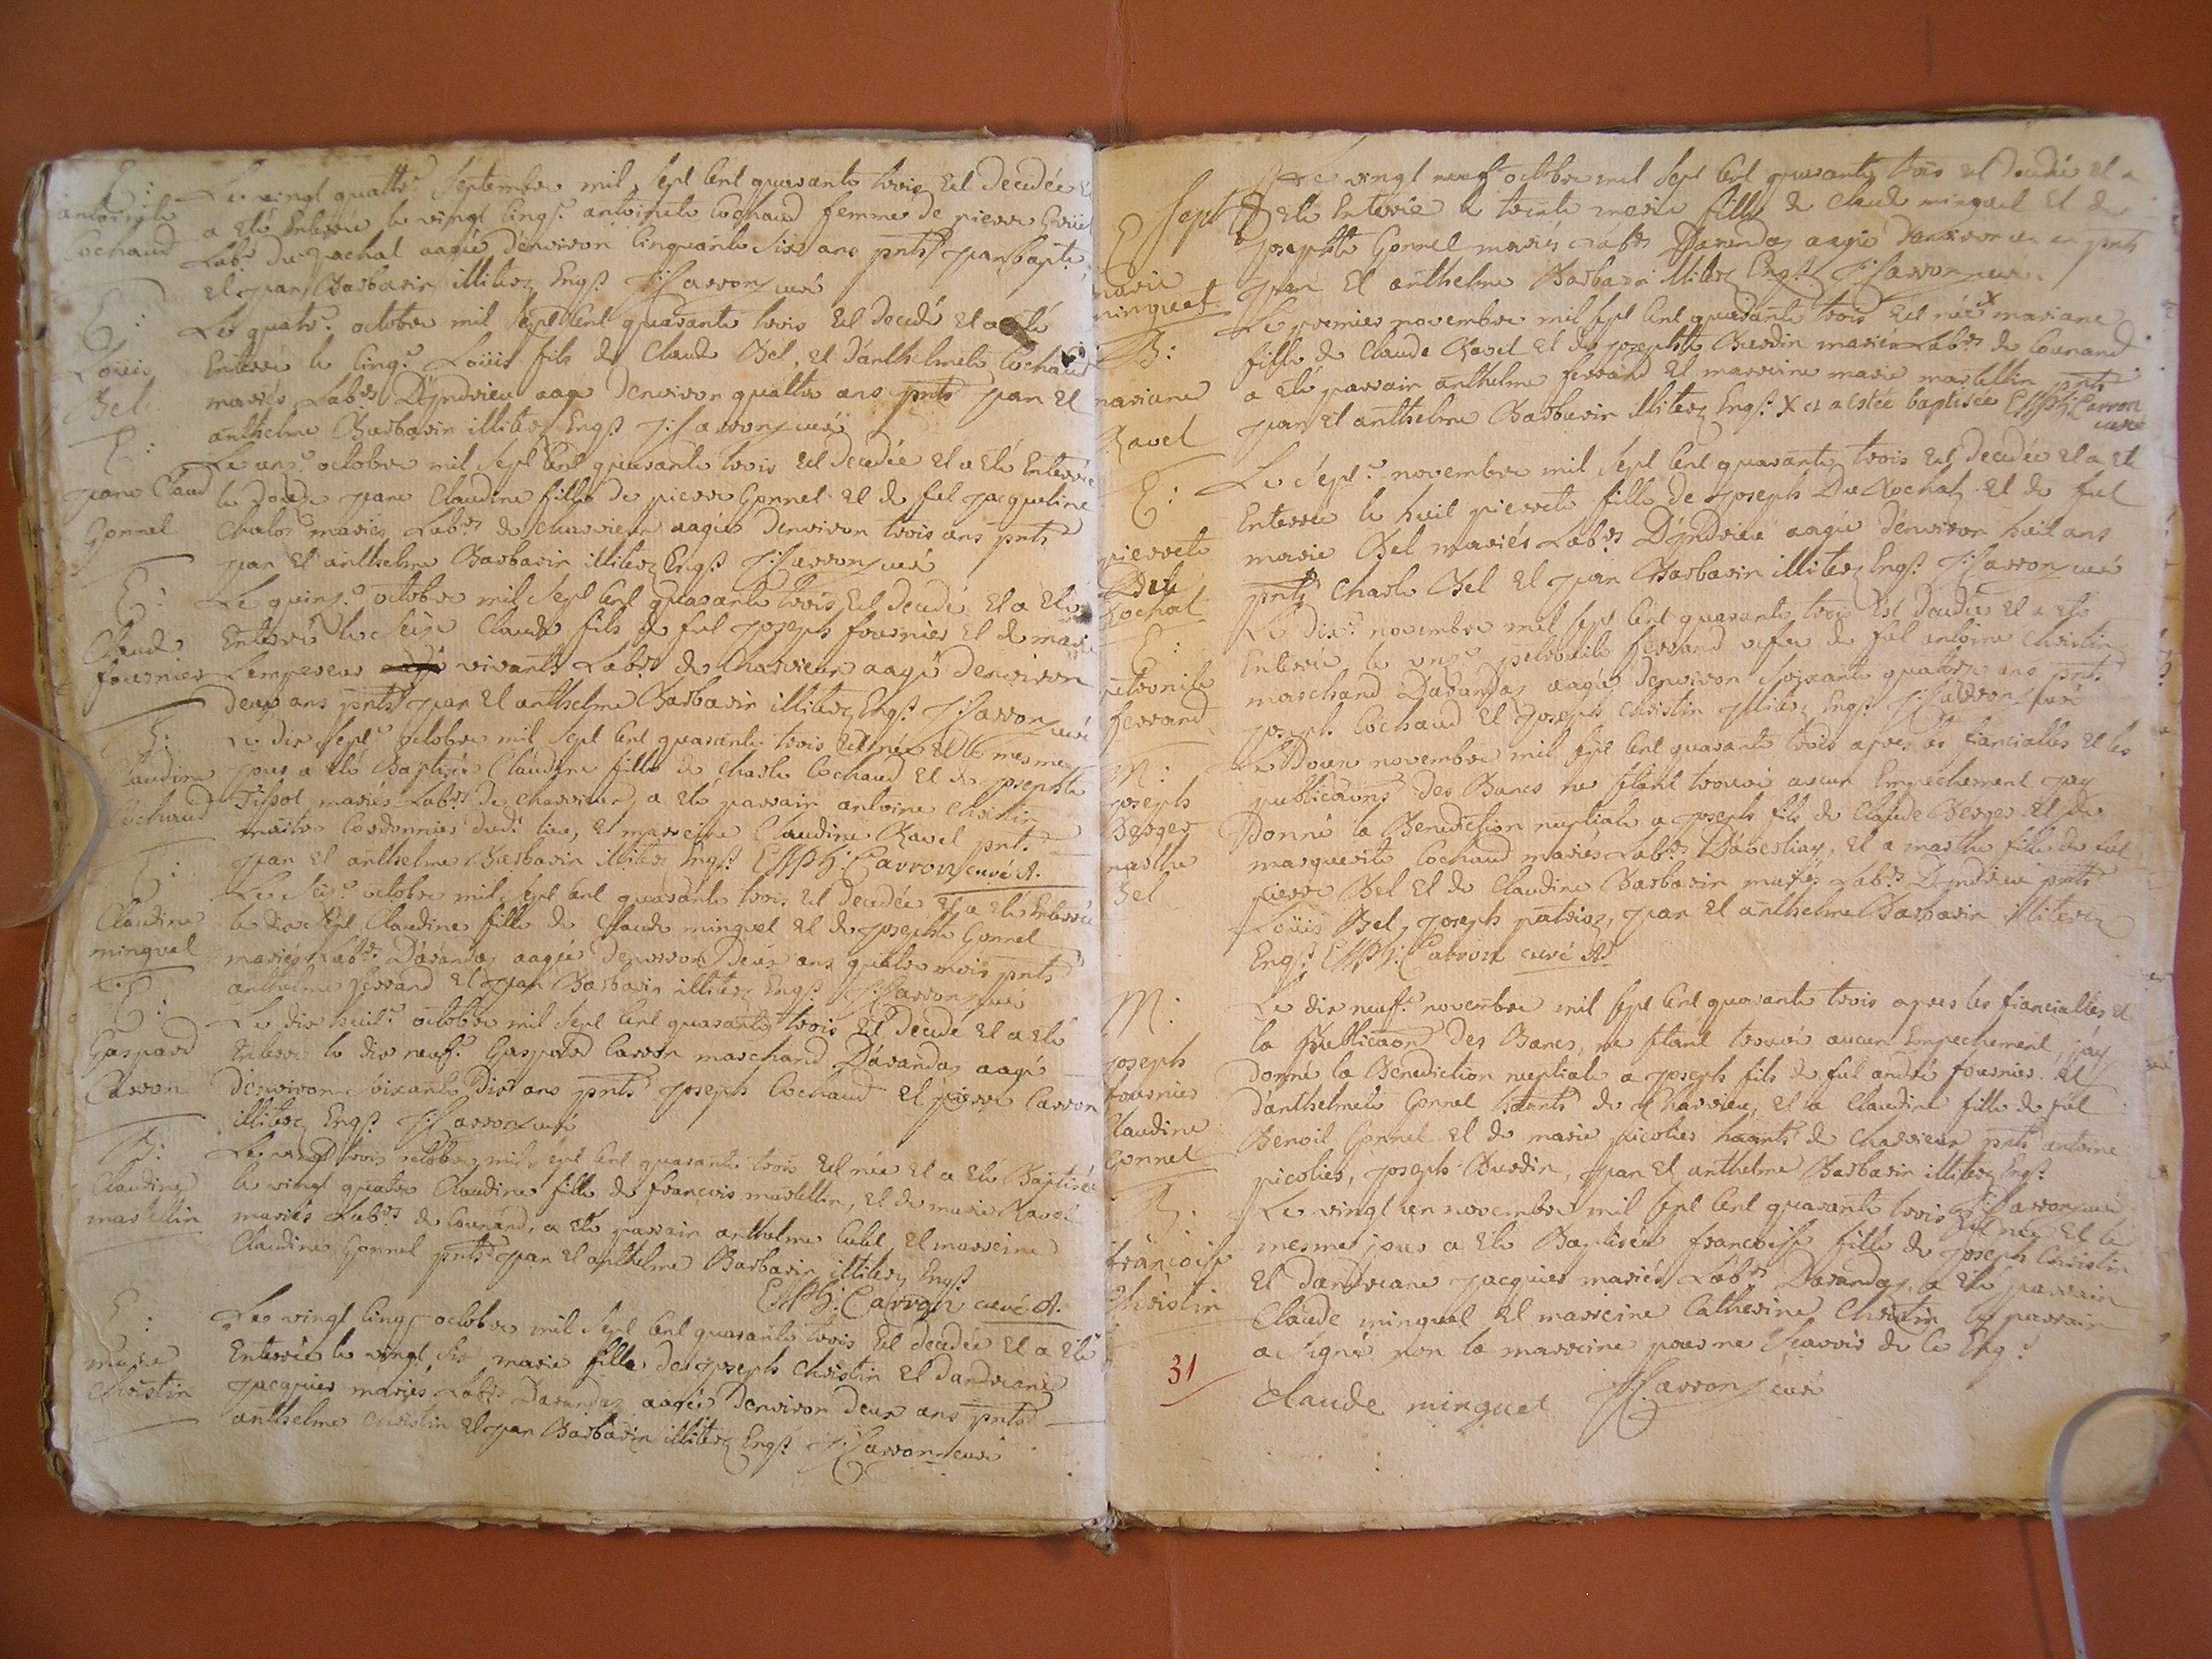 E:
antoinete
Cochaud
Le vingt quattr.e Septembre mil sept Cent quarante trois Est decedée Et
a Eté Enterrée le vingt Cinq.e antoinete Cochaud femme de pierre
Lab.r du Rachat aagée d'environ Cinquante Six ans pnts Jean bapte
et Jean Barbarin illiterz Enqs J: Carron curé
E:
Loüis
Bel
Le quatr.e octobre mil Sept Cent quarante trois Est decedé Et a Eté
Enterré le Cinq.e Loüis fils de Claude Bel, Et d'anthelmete Cochaud
mariés Lab.rs D'Jndrieu aagé denviron quattre ans pnts Jean Et
anthelme Barbarin illiterz Enqs J: Carron curé
E:
Jane Claud
Gonnel
Le unz.e octobre mil Sept Cent quarante trois Est decedée Et a Eté Enterrée
le douze Jane Claudine fille de pierre Gonnel Et de fut Jacqueline
mariés Lab.rs de Charvieux aagée denviron trois ans pnts
Jean Et anthelme Barbarin illiterz Enqs J: Carron curé
E:
Claude
fournier
Le quinz.e octobre mil Sept Cent quarante trois Est decedé Et a Eté
Enterré le Seize Claude fils de fut Joseph fournier Et de marie
Lempereur vivants Lab.rs de Charvieux aagé denviron
deux ans pnts Jean Et anthelme Barbarin illiterz Enqs J: Carron curé
B:
Claudine
Cochaud
Le dix Sept.e octobre mil Sept Cent quarante trois Est née Et le mesme
jour a Eté Baptisée Claudine fille de Charle Cochaud Et de Josephte
Tissot mariés Lab.rs de Charvieux, a Eté parrain antoine Christin
maitre Cordonnier dud.t lieu, Et marreine Claudine Ravel pnts
Jean Et anthelme Barbarin illiterz Enqs J: Carron curé A.
E:
Claudine
minguet
Le Seiz.e octobre mil Sept Cent quarante trois Est decedée Et a Eté Enterrée
le dix Sept Claudine fille de Claude minguet Et de Josephte Gonnel
mariés Lab.rs D'arandaz aagée denviron Deux ans quatre mois pnts
anthelme ferrand Et Jean Barbarin illiterz Enqs J: Carron curé
E:
Gaspard
Carron
Le dix huit.e octobre mil Sept Cent quarante trois Est decedé Et a Eté
Enterré le dix neuf.e Gaspard Carron marchand D'arandaz aagé
d'environ Soixante Dix ans pnts Joseph Cochaud Et pierre Carron
illiterz Enqs J: Carron curé
B:
Claudine
martellin
Le vingt trois octobre mil Sept Cent quarante trois Est née Et a Eté Baptisée
le vingt quatre Claudine fille de francois martellin, Et de marie Ravel
mariés Lab.rs de Counand, a Eté parrain anthelme Cubit Et marreine
Claudine Gonnel pnts Jean Et anthelme Barbarin illiterz Enqs
J: Carron curé A.
E:
marie
Christin
Le vingt Cinq octobre mil Sept Cent quarante trois Est decedée Et a Eté
Enterrée le vingt Six marie fille de Joseph Christin Et dandreane
Jacquier mariés Lab.rs Darandaz aagée Denviron deux ans pnts
anthelme Christin Et Jean Barbarin illiterz Enqs J: Carron curé
E
marie
minguet
Le vingt neuf octobre mil Sept Cent quarante trois Est decedée Et a
Eté Enterrée le trente marie fille de Claude minguet Et de
Josephte Gonnel mariés Lab.rs Darandaz aagée denviron un an pnts
Jean Et anthelme Barbarin illiterz Enqs J: Carron curé
B:
mariane
Ravel
Le premier novembre mil Sept Cent quarante trois Est née x mariane
fille de Claude Ravel Et de Josephte Burdin mariés Lab.rs de Counand
a Eté parrain anthelme ferrand Et marreine marie martellin pnts
Jean Et anthelme Barbarin illiterz Enqs x et a estée baptisée J: Carron
curé
E:
pierrete
Du
Rochat
Le Sept.e novembre mil Sept Cent quarante trois Est decedée Et a Eté
Enterrée le huit pierrete fille de Joseph Du Rochat Et de fut
marie Bel mariés Lab.rs D'Jndrieu aagée d'environ huit ans
pnts Charle Bel Et Jean Barbarin illiterz Enqs J: Carron curé
E:
petronile
ferrand
Le dix.e novembre mil Sept Cent quarante trois Est decedée Et a Eté
Enterrée le unz.e petronile ferrand vefve de fut antoine Christin
marchand Darandaz aagée denviron Soixante quatorze ans pnts
Joseph Cochaud Et Joseph Christin illiterz Enqs J: Carron curé
M:
Joseph
Berger
marthe
Bel
Le Douze novembre mil Sept Cent quarante trois apres les fiancialles Et les
publicaons des Bancs ne Stant trouvé aucun Empechement Jay
Donné la Benediction nuptiale a Joseph fils de Claude Berger Et de
marguerite Cochaud mariés Lab.rs Et a marthe fille de fut
pierre Bel Et de Claudine Barbarin mariés Lab.rs D'Jndrieu pnts
Loüis Bel, Joseph Jean Et anthelme Barbarin illiterz
Enqs J: Carron curé A.
M:
Joseph
fournier
Claudine
Gonnel
Le dix neuf.e novembre mil Sept Cent quarante trois apres les fiancialles Et
la Publicaon des Bancs, ne Stant trouvé aucun Empechement, j'ay
donné la Benediction nuptiale a Joseph fils de fut andré fournier Et
d'anthelmete Gonnel de Charvieux, Et a Claudine fille de fut
Benoit Gonnel Et de marie picolier de Charvieux pnts antoine
picolier, Joseph Burdin, Jean Et anthelme Barbarin illiterz Enqs
J: Carron curé
B:
francoise
Christin
Le vingt un novembre mil Sept Cent quarante trois Est née Et le
mesme jour a Eté Baptisée francoise fille de Joseph Christin
Et Dandreane Jacquier mariés Lab.rs Darandaz, a Eté parrain
Claude minguet Et marreine Catherine Christin le parrain
a Signé non la marreine pour ne Scavoir de Ce Enq.s
31
Claude minguet J: Carron curé